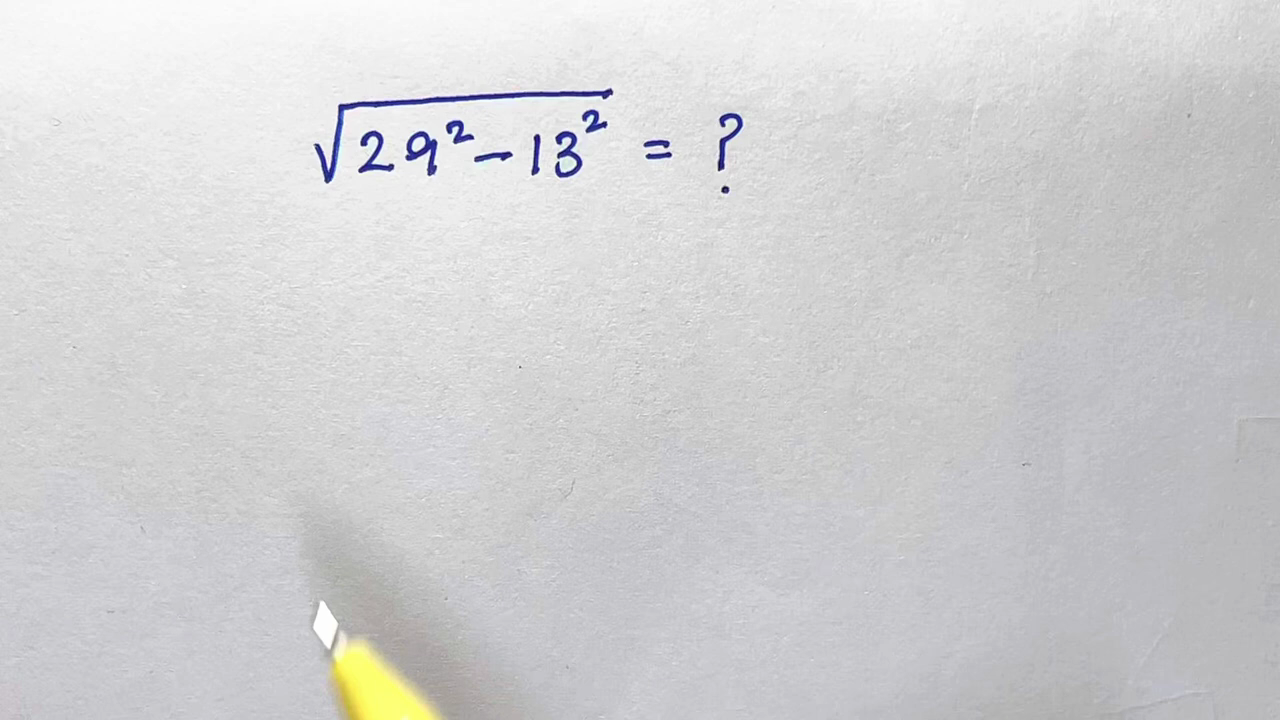 √29² - 13² = ?